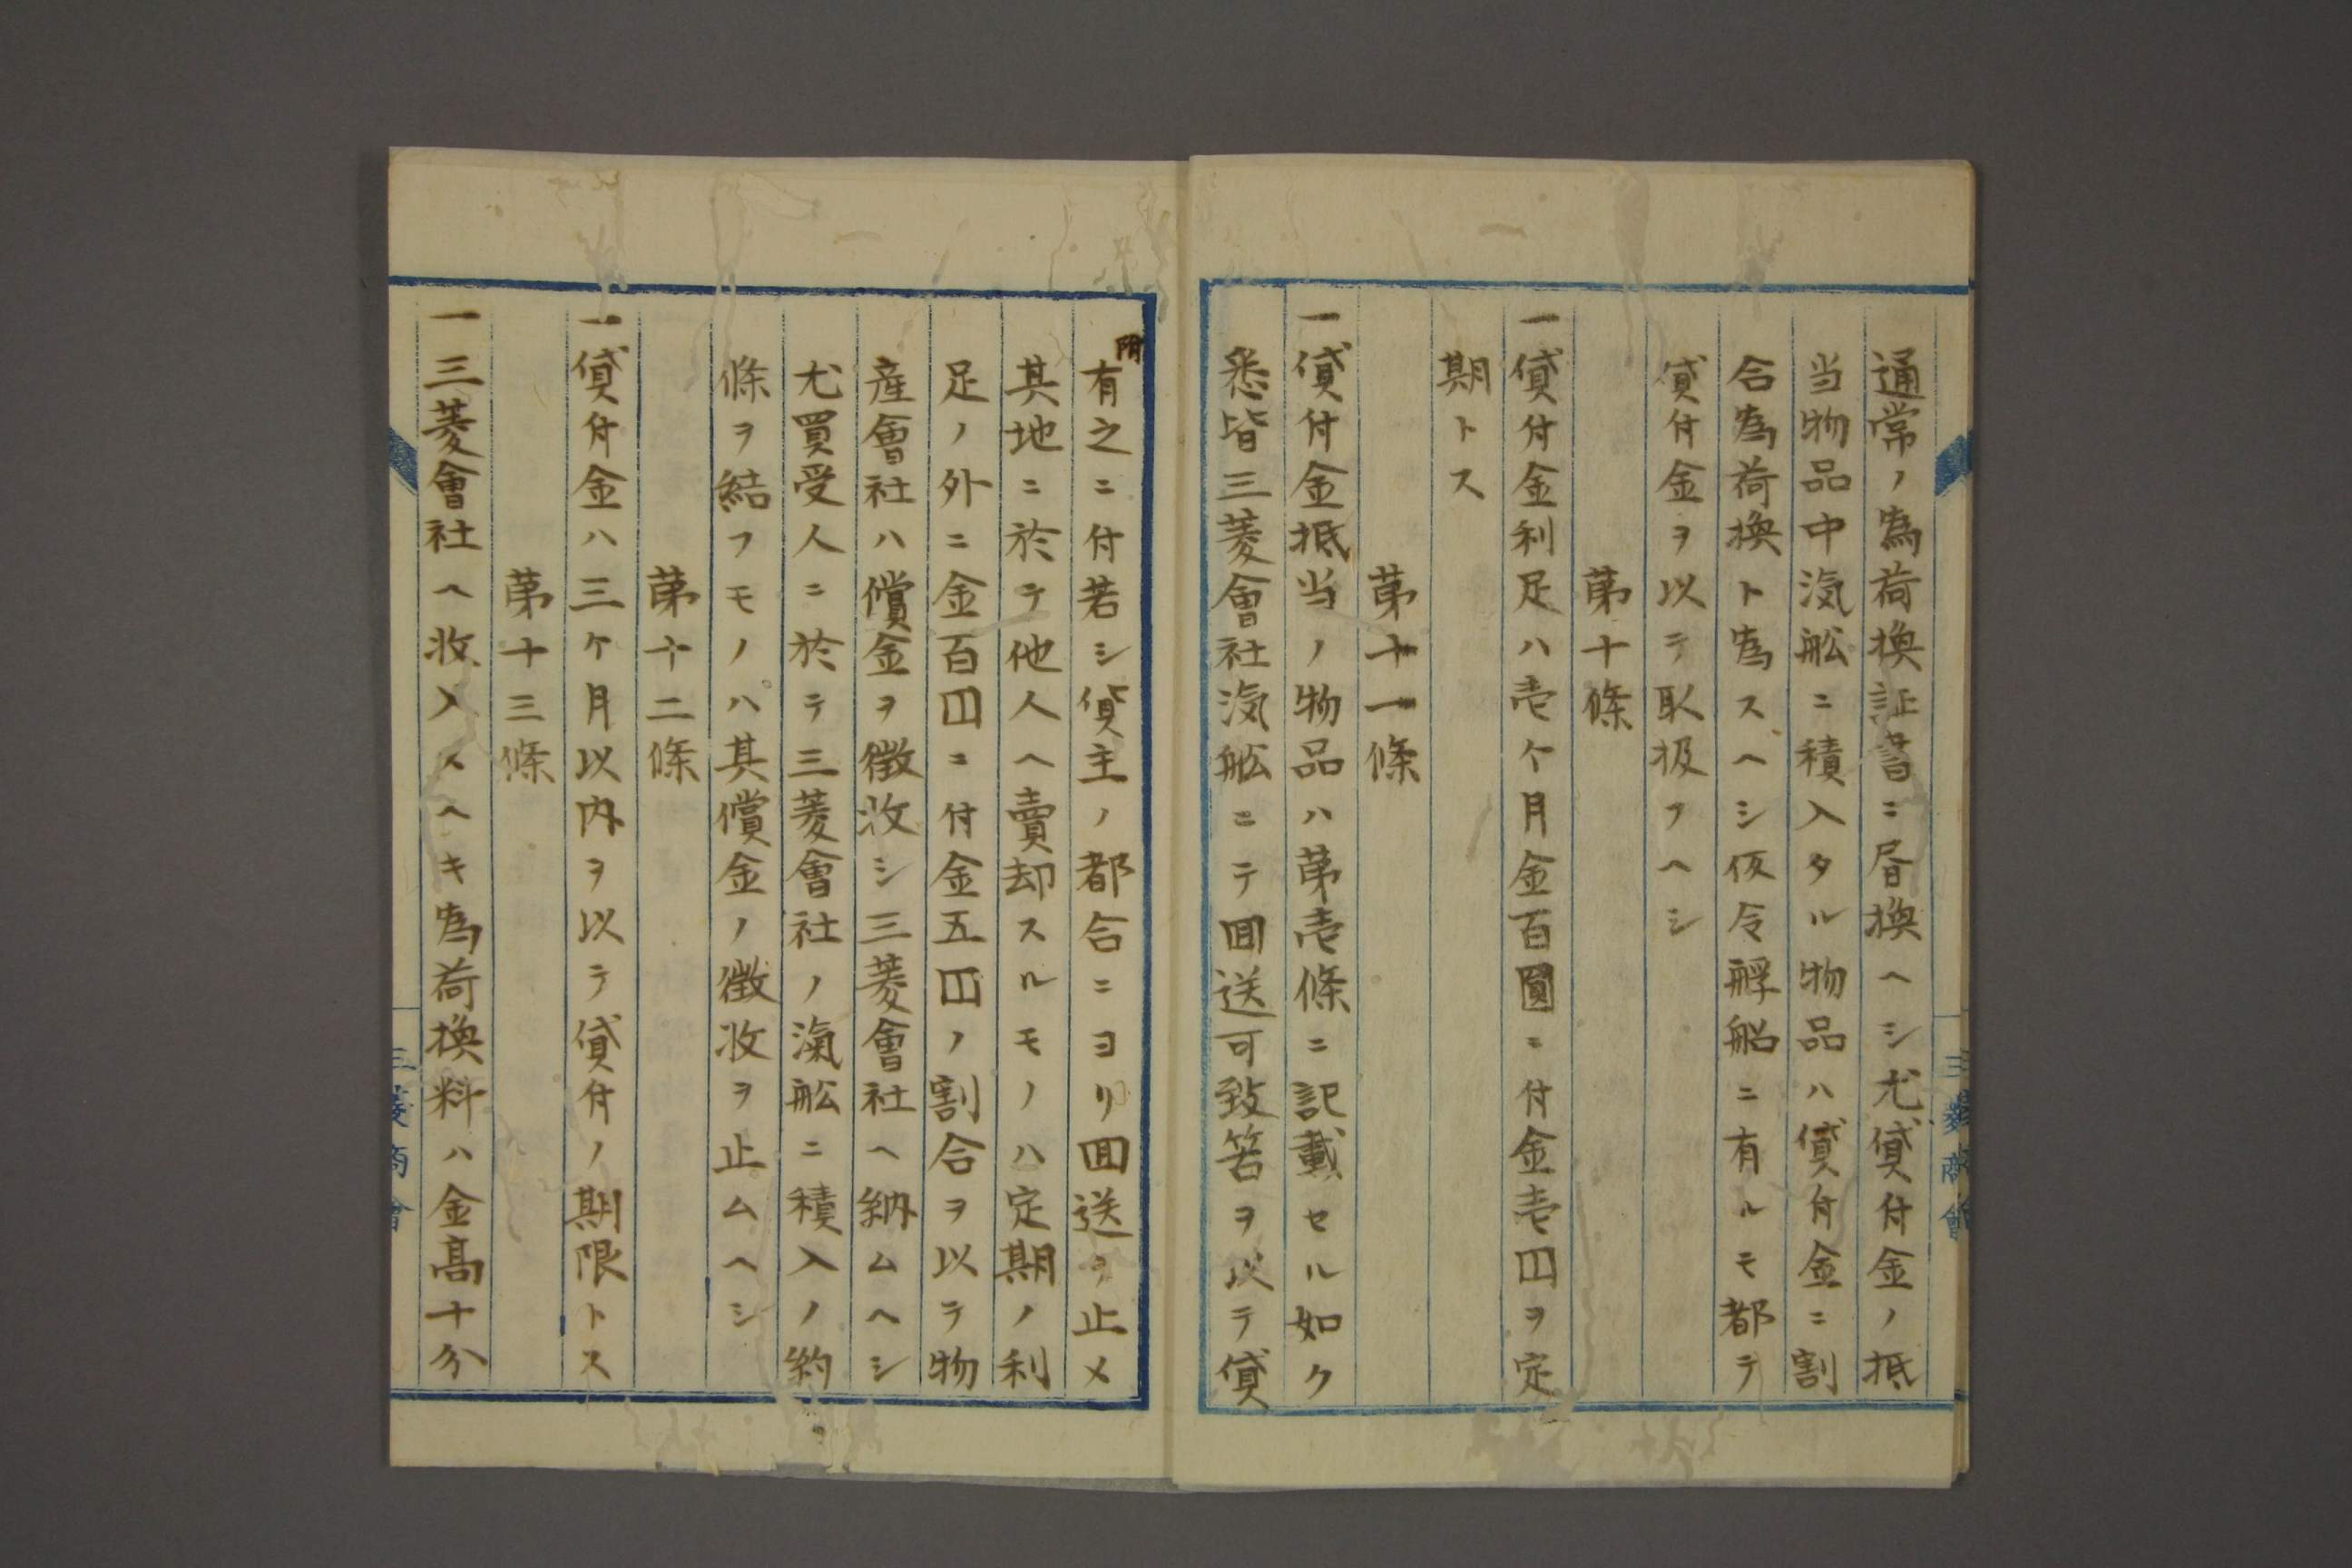 通常ノ為荷換証書ニ昏換ヘシ尤貸付金ノ抵
当物品中汽舩ニ積入タル物品ハ貸付金ニ割
合為荷換ト為スヘシ仮令艀船ニ有ルモ都テ
貸付金ヲ以テ取扱フヘシ
第十條
一貸付金利足ハ壱ケ月金百圓ニ付金壱円ヲ定
期トス
第十一條
一貸付金抵当ノ物品ハ第壱條ニ記載セル如ク
悉皆三菱會社汽舩ニテ回送可致筈ヲ以テ貸
附
有之ニ付若シ貸主ノ都合ニヨリ回送ヲ止メ
其地ニ於テ他人ヘ賣却スルモノハ定期ノ利
足ノ外ニ金百円ニ付金五円ノ割合ヲ以テ物
産會社ハ償金ヲ徴收シ三菱會社ヘ納ムヘシ
尤買受人ニ於テ三菱會社ノ滊舩ニ積入ノ約
條ヲ結フモノハ其償金ノ徴收ヲ止ムヘシ
第十二條
一貸付金ハ三ケ月以内ヲ以テ貸付ノ期限トス
第十三條
一三菱會社ヘ收入スヘキ為荷換料ハ金髙十分
三菱商會